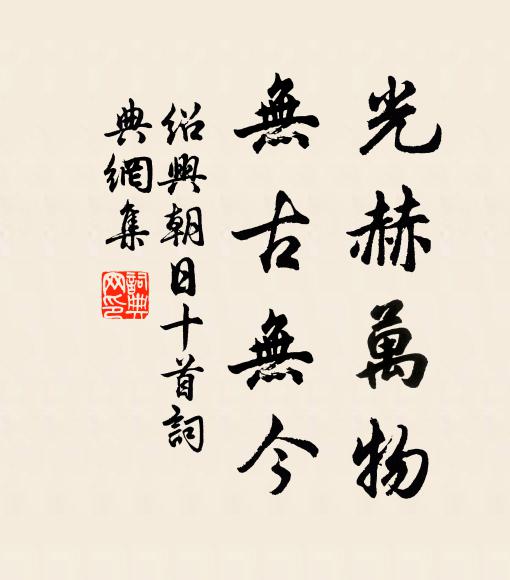 光赫萬物
無古無今
紹興朝日十首詞
典網集
詞典
网印